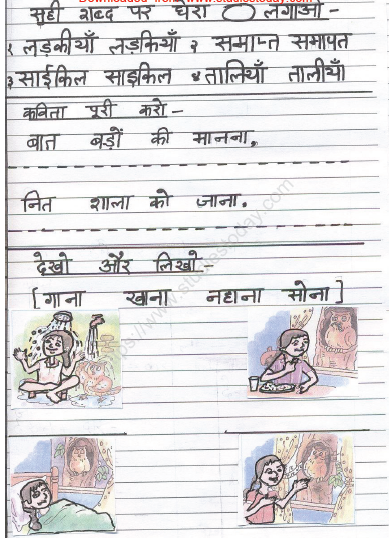 Downloaded from www.studiestoday.com
सही शब्द पर घेरा लगाओ -
१ लड़कीयाँ लड़कियाँ २ समाप्त समापत
३ साईकिल साइकिल ४ तालियाँ तालीयाँ
कविता पूरी करो -
बात बड़ों की मानना,
नित शाला को जाना.
देखो और लिखो -
[गाना खाना नहाना सोना]
https://www.studiestoday.com